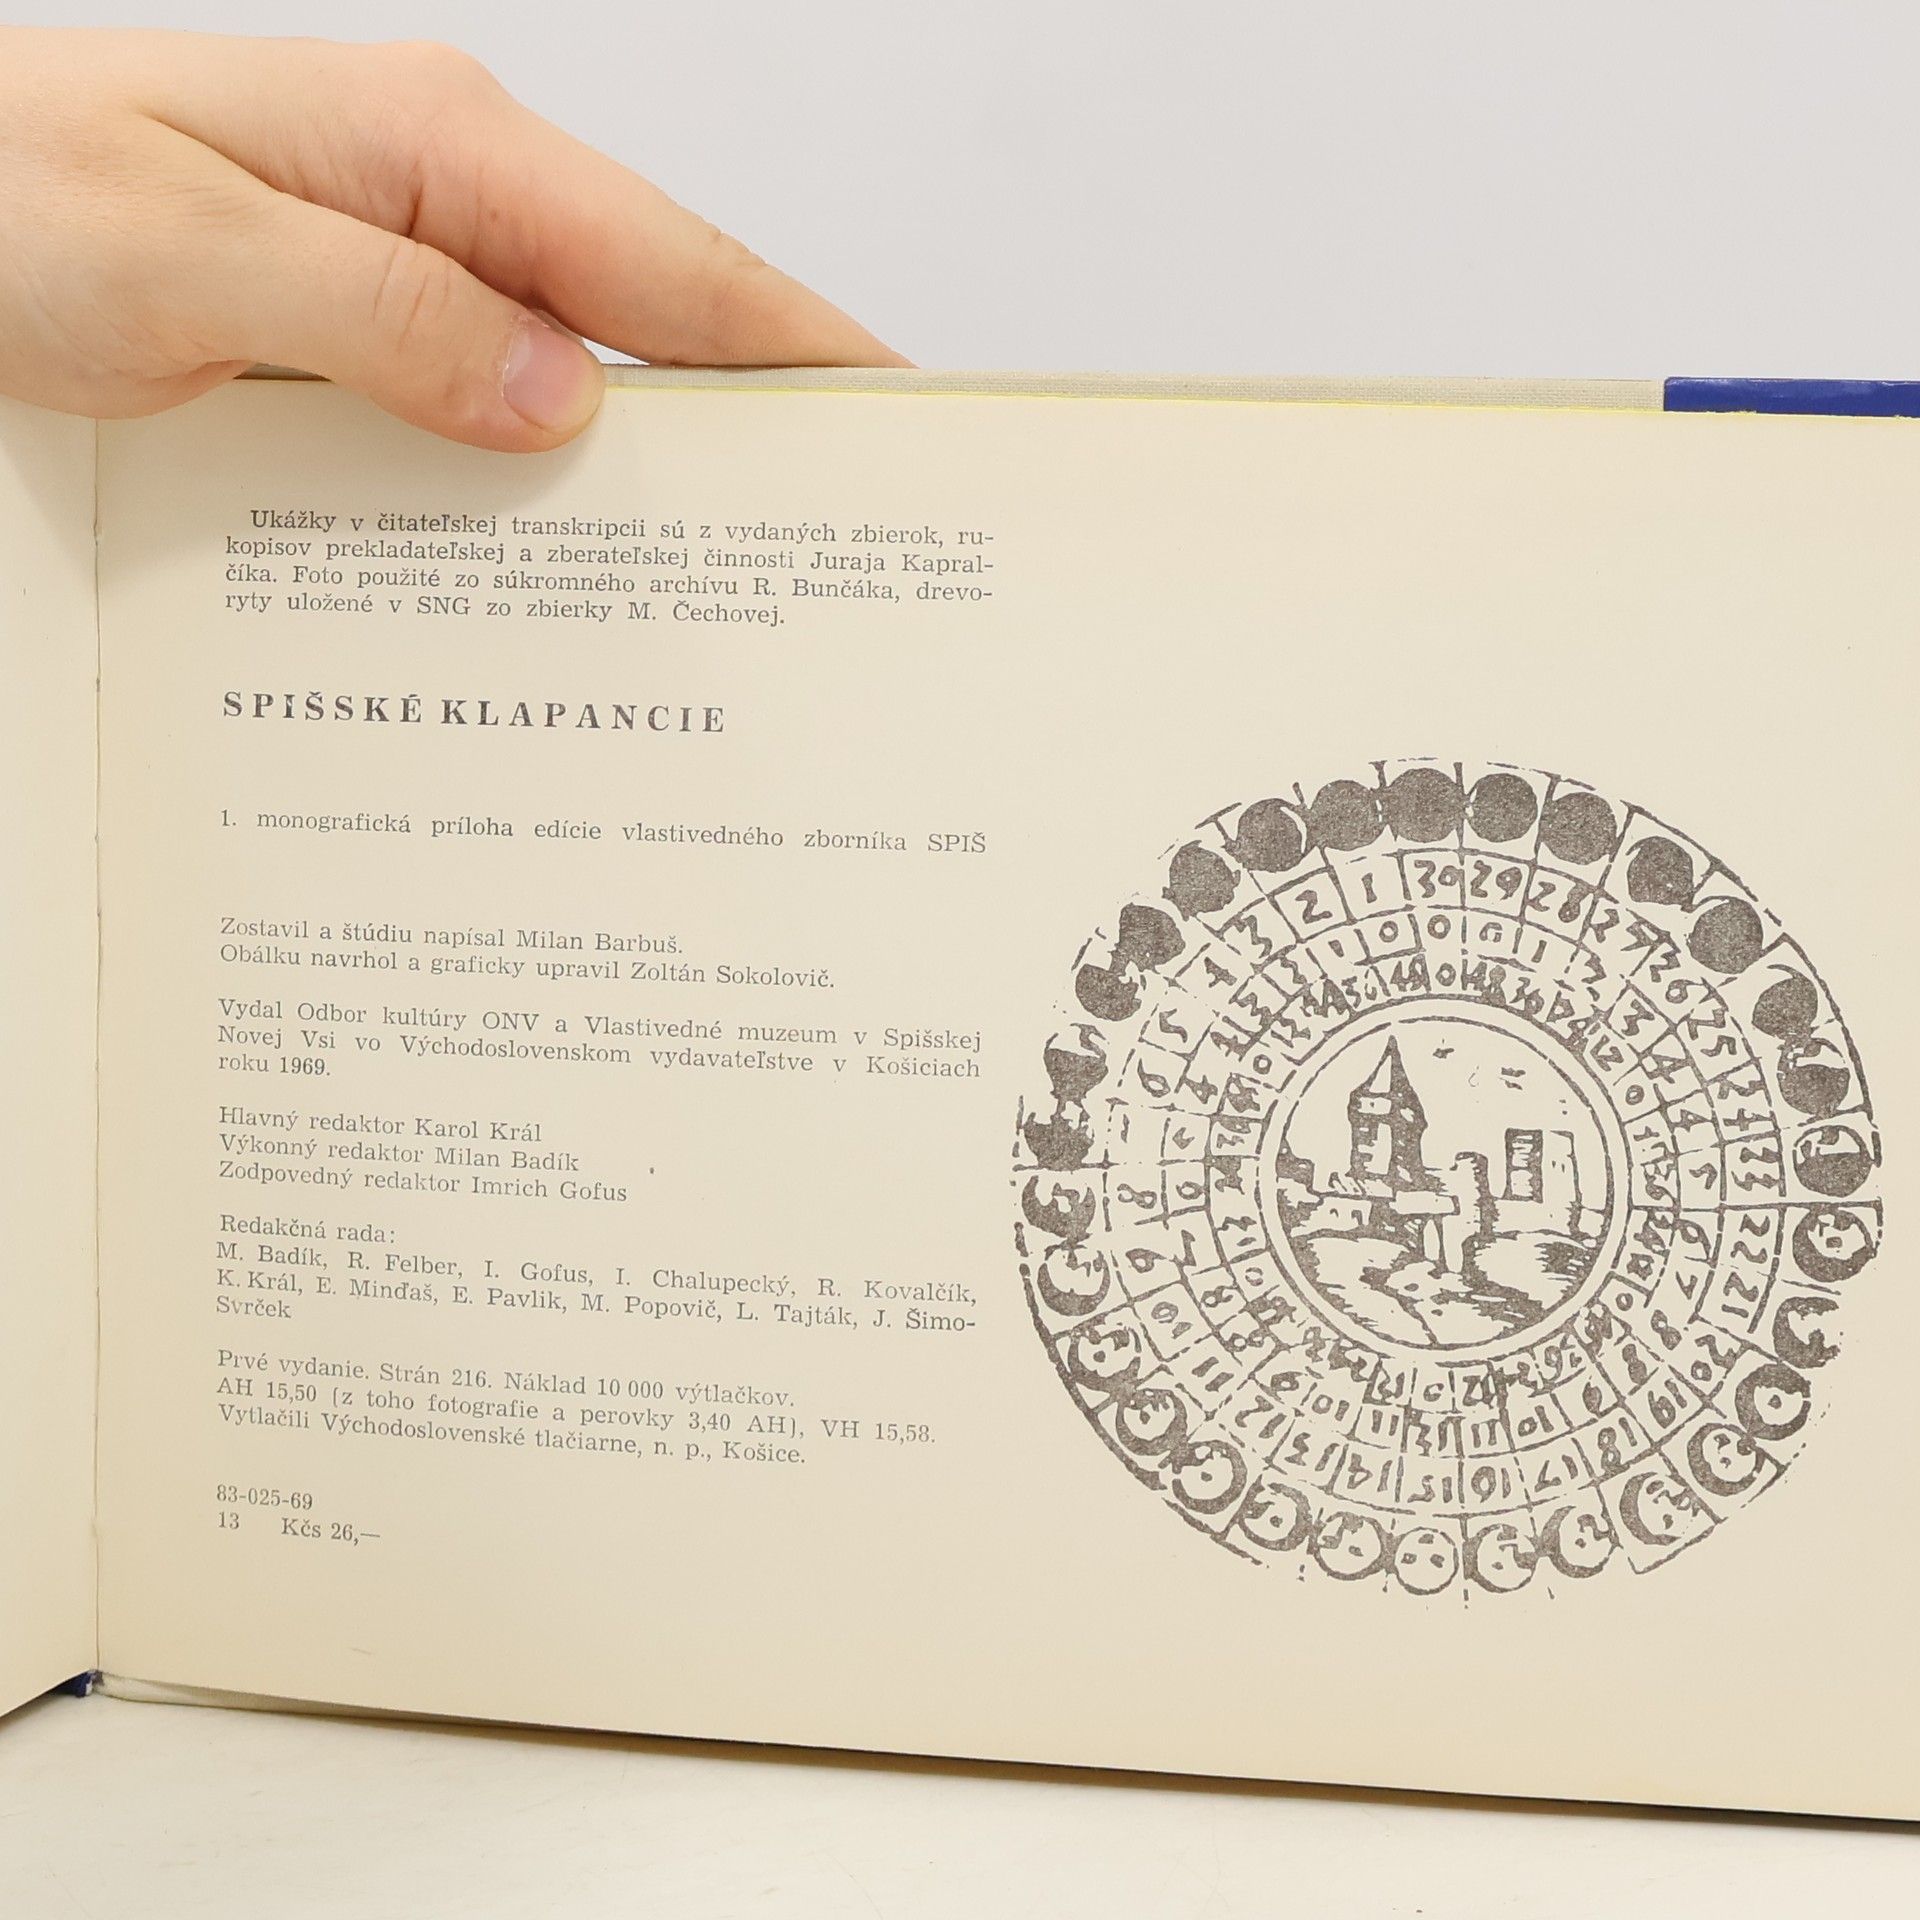 Ukážky v čitateľskej transkripcii sú z vydaných zbierok, ru-
kopisov prekladateľskej a zberateľskej činnosti Juraja Kapral-
číka. Foto použité zo súkromného archívu R. Bunčáka, drevo-
ryty uložené v SNG zo zbierky M. Čechovej.
SPIŠSKÉ KLAPANCIE
1. monografická príloha edície vlastivedného zborníka SPIŠ
Zostavil a štúdiu napísal Milan Barbuš.
Obálku navrhol a graficky upravil Zoltán Sokolovič.
Vydal Odbor kultúry ONV a Vlastivedné muzeum v Spišskej
Novej Vsi vo Východoslovenskom vydavateľstve v Košiciach
roku 1969.
Hlavný redaktor Karol Král
Výkonný redaktor Milan Badík
Zodpovedný redaktor Imrich Gofus
Redakčná rada:
M. Badík, R. Felber, I. Gofus, I. Chalupecký, R. Kovalčík,
K. Král, E. Minďaš, E. Pavlik, M. Popovič, L. Tajták, J. Šimo-
Svrček
Prvé vydanie. Strán 216. Náklad 10 000 výtlačkov.
AH 15,50 (z toho fotografie a perovky 3,40 AH), VH 15,58.
Vytlačili Východoslovenské tlačiarne, n. p., Košice.
83-025-69
13 Kčs 26,—